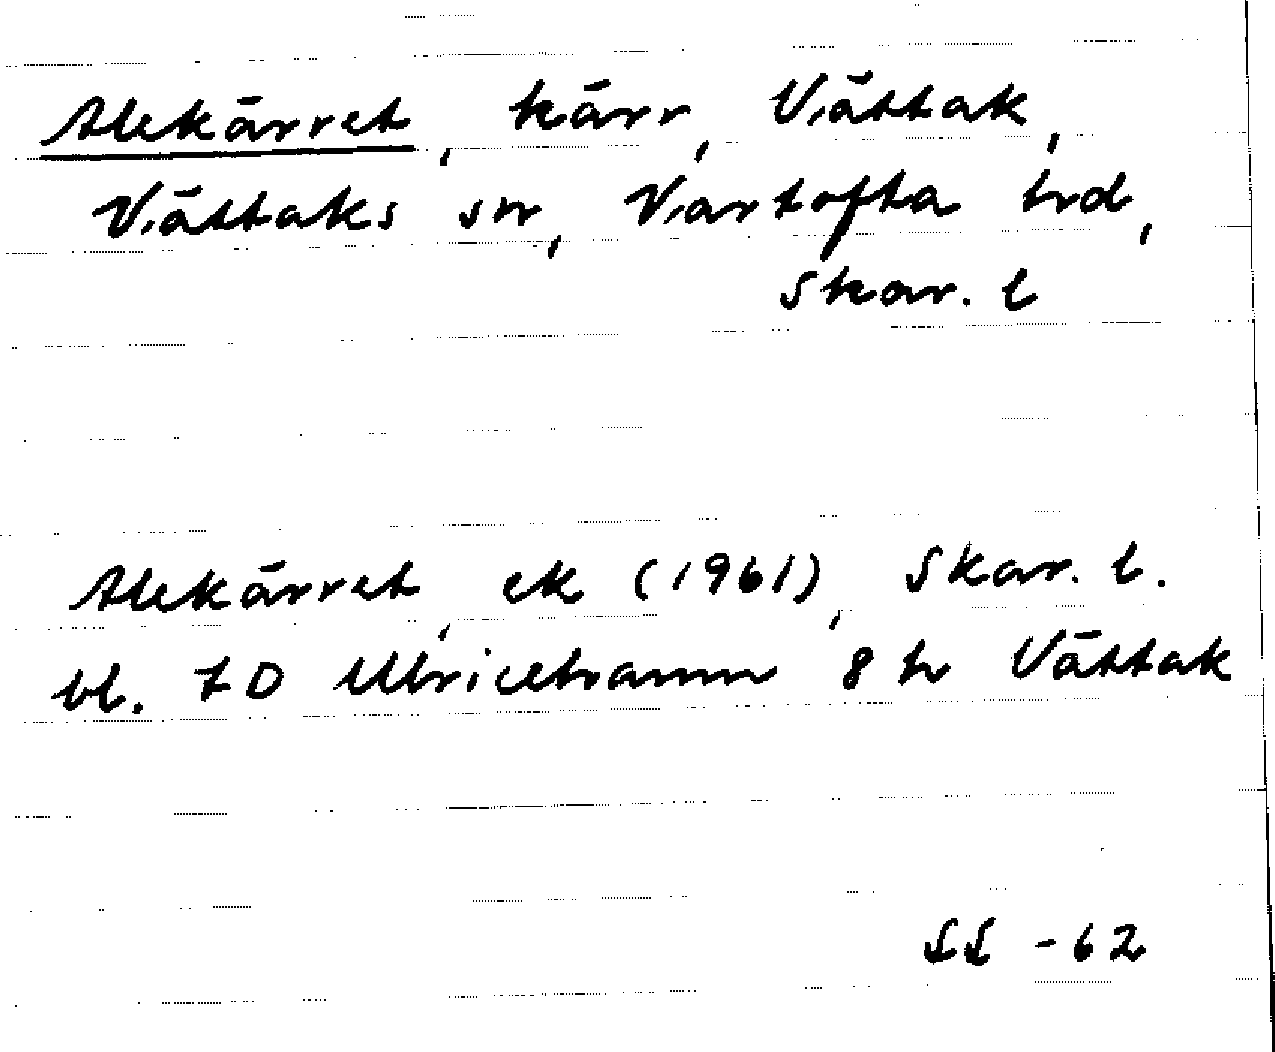 Alekärret, kärr, Vättak,
Vättaks sn, Vartofta hd,
Skar. l
Alekärret, ek (1961), Skar. l.
bl. 7D Ulricehamn 8 h Vättak
LL -62